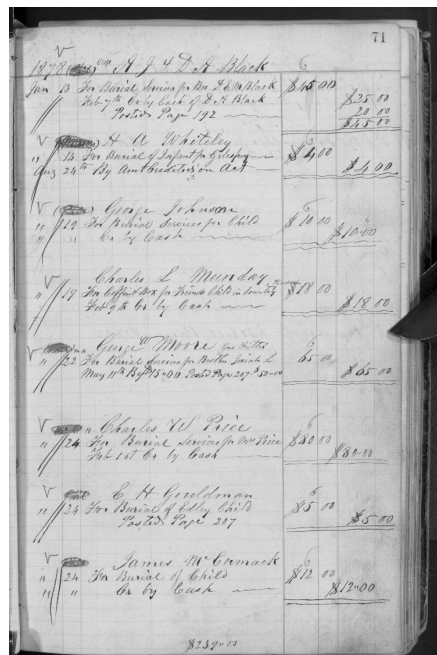 71
1878 A J & D H Black
Jan 13 For Burial Services for Mrs D E M Black $45 00
Feb 7th Cr by Cash of D H Black $25 00
20 00
Posted Page 192 $45 00
H A Whiteley
" 14 For Burial of Infant for $4 00
Aug 24th By Amt Credited on Act $4.00
George Johnson
" 19 For Burial Services for Child $10 00
" " Cr by Cash $10-00
Charles L Munday
" 19 For Coffin & Box for Friends Child in Country $18 00
Feb 9th Cr by Cash $18 00
George W Moore
" 22 For Burial Services for Brother Josiah L 65 00
May 11th By $15-00 Posted Page 207 $50-00 $65 00
Charles W Price
" 24 For Burial Services for Mrs Price $80 00
Feb 1st Cr by Cash $80-00
E H Gouldman
" 24 For Burial of Edley Child $5 00
Posted Page 207 $5.00
James McCormack
" 24 For Burial of Child $12 00
" " Cr by Cash $12-00
$239-00